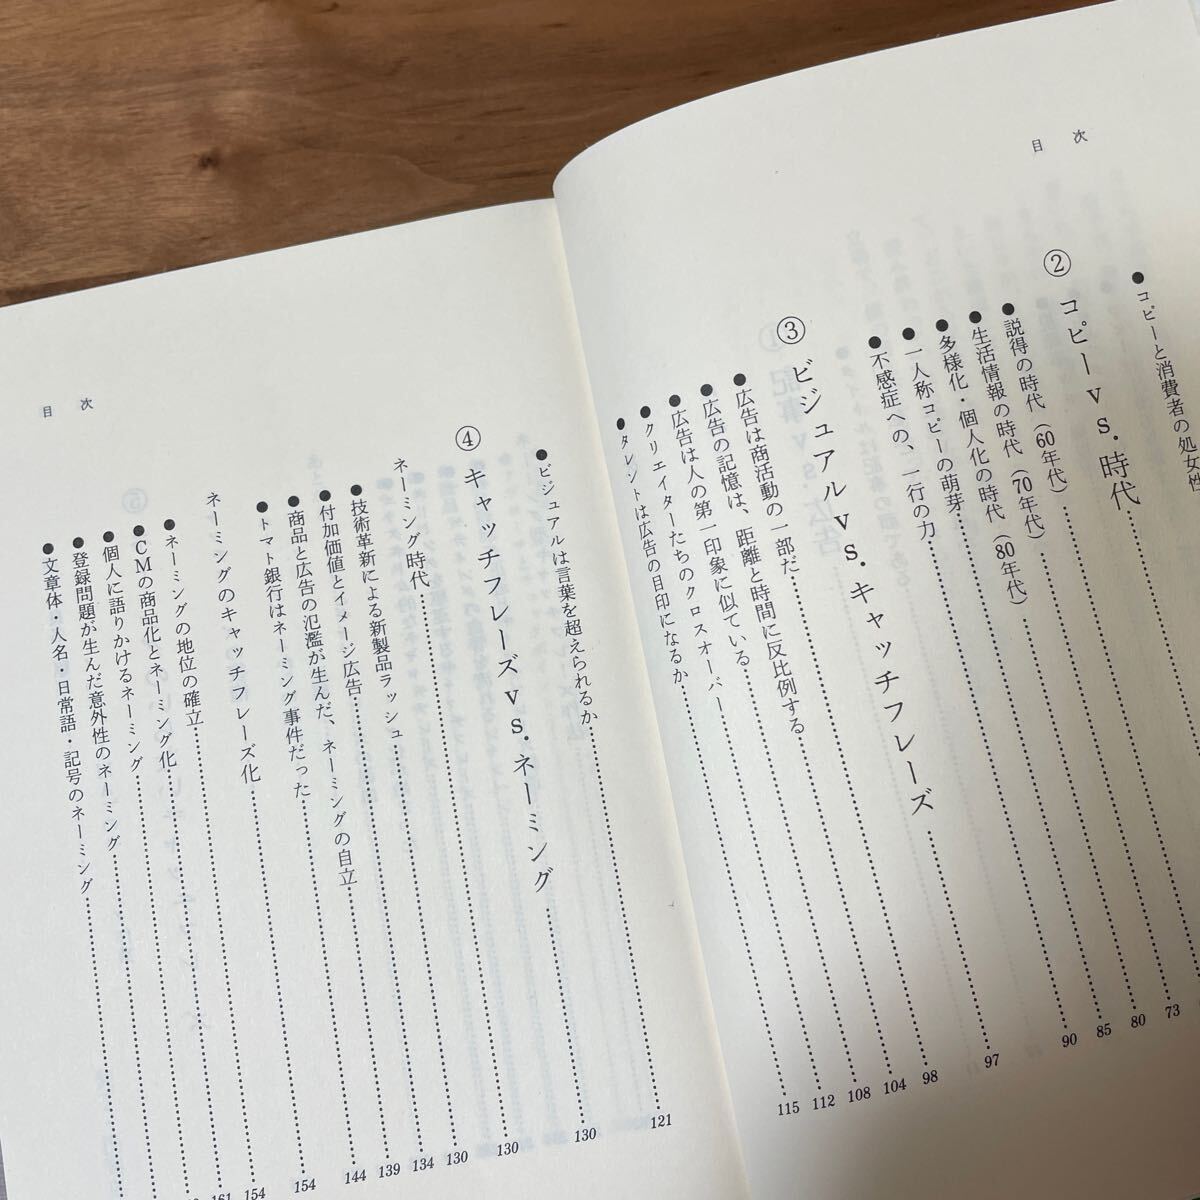 目次
●コピーと消費者の処女性
②コピーvs.時代
●説得の時代（60年代）
●生活情報の時代（70年代）73
●多様化・個人化の時代（80年代）80
●一人称コピーの萌芽85
●不感症への、一行の力90
③ビジュアルvs.キャッチフレーズ97
●広告は商活動の一部だ98
●広告の記憶は、距離と時間に反比例する104
●広告は人の第一印象に似ている108
●クリエイターたちのクロスオーバー112
●タレントは広告の目印になるか115
●ビジュアルは言葉を超えられるか121
④キャッチフレーズvs.ネーミング130
ネーミング時代130
●技術革新による新製品ラッシュ130
●付加価値とイメージ広告134
●商品と広告の氾濫が生んだ、ネーミングの自立139
●トマト銀行はネーミング事件だった144
ネーミングのキャッチフレーズ化154
●ネーミングの地位の確立154
●CMの商品化とネーミング化161
●個人に語りかけるネーミング
●登録問題が生んだ意外性のネーミング
●文章体・人名・日常語・記号のネーミング
目次